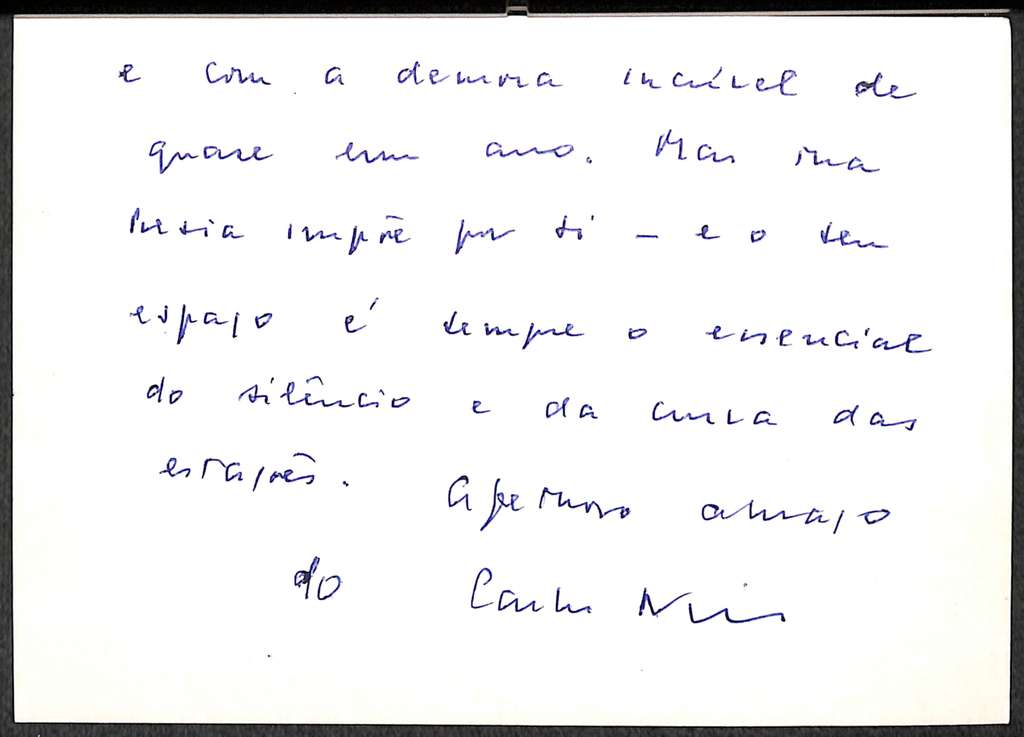 e com a demora incrível de
quase um ano. Mas sua
Poesia impõe por si – e o seu
espaço é sempre o essencial
do silêncio e da curva das
estações. Afetuoso abraço
do Carlos